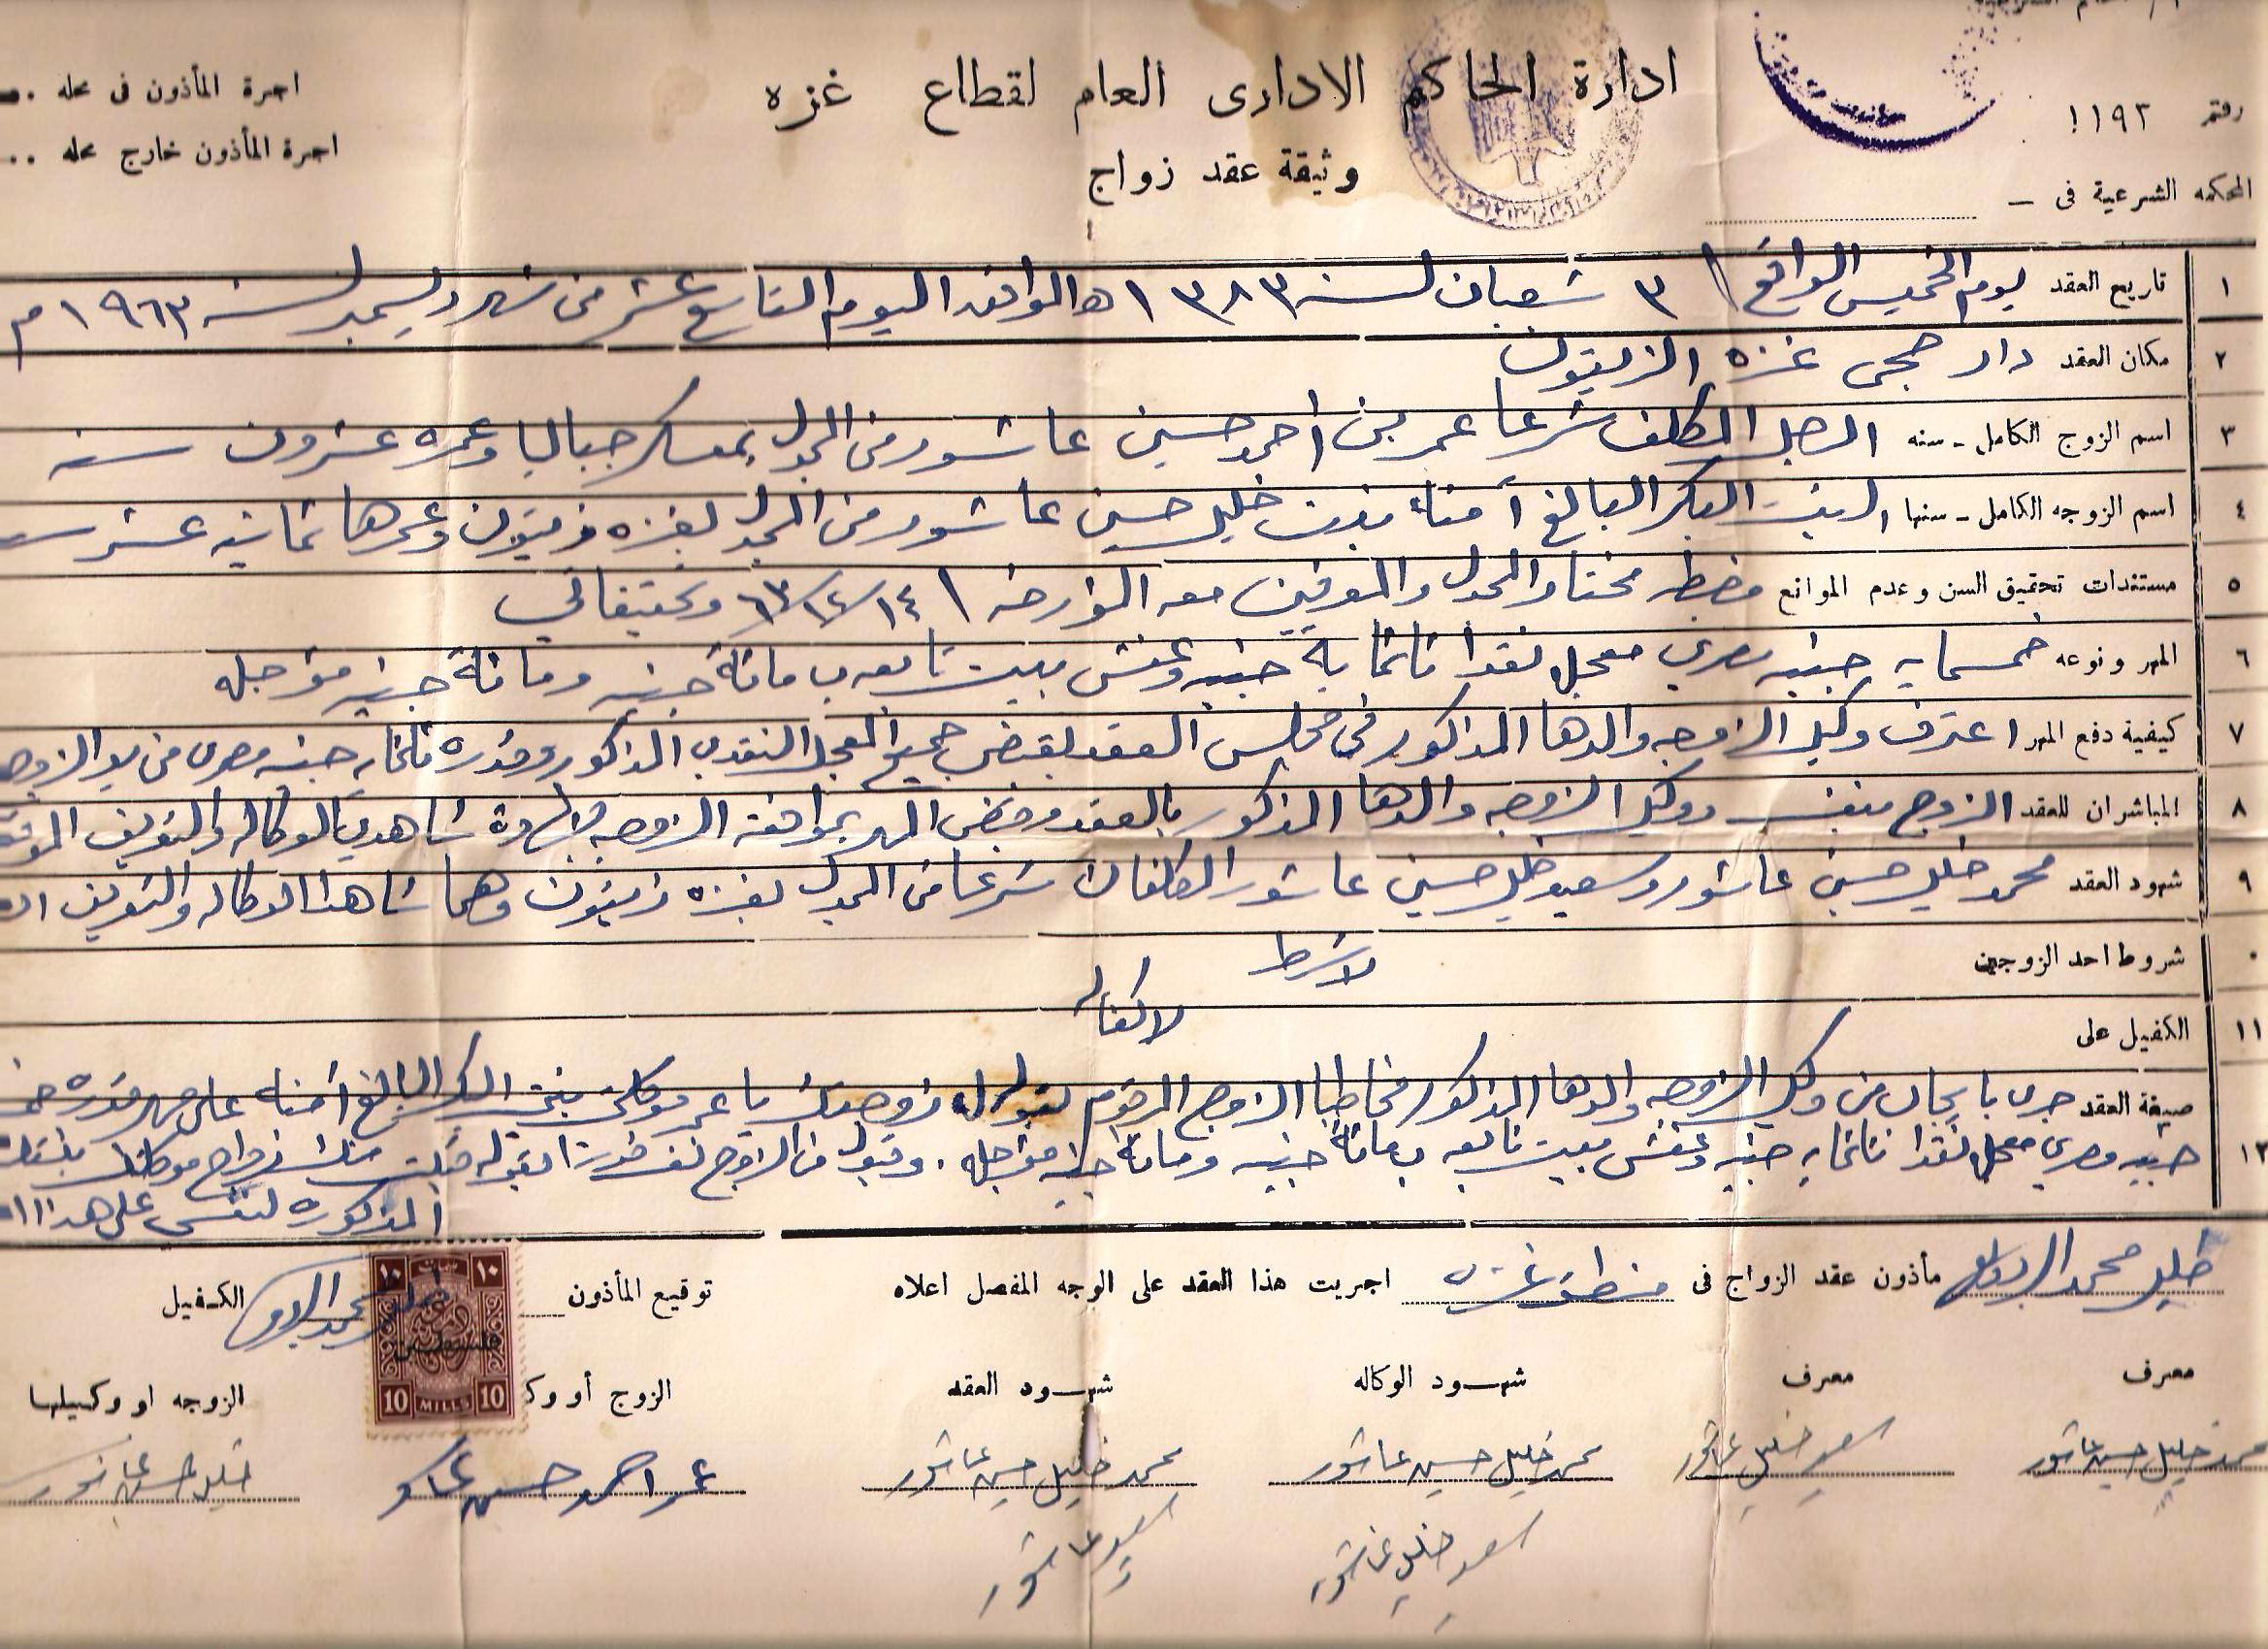 ادارة الحاكم الادارى العام لقطاع غزه
وثيقة عقد زواج
اجرة المأذون فى محله
اجرة المأذون خارج محله
دفتر ١١٩٢
المحكمه الشرعية فى
١ تاريخ العقد يوم الخميس الواقع ٣ شعبان لسنه ١٣٨٣ هـ الموافق اليوم التاسع عشر من شهر ديسمبر لسنه ١٩٦٣ م
٢ مكان العقد دار حجى غزه الزيتون
٣ اسم الزوج الكامل - سنه الرجل المكلف شرعا عمر بن احمد حسين عاشور من المجدل بمعسكر جباليا وعمره عشرون سنه
٤ اسم الزوجه الكامل - سنها البنت البكر البالغ آمنه بنت خليل حسين عاشور من المجدل بغزه زيتون وعمرها ثمانيه عشر
٥ مستندات تحقيق السن وعدم الموانع مضبطه مختار المجدل والموقعين معه المؤرخه ١٤/١٢/٦٣ وتحقيقاتي
٦ المهر ونوعه خمسمايه جنيه مصري معجله نقدا ثلثماية جنيه وعفش بيت تابعه ب مائة جنيه ومائة جنيه مؤجله
٧ كيفية دفع المهر اعترف وكيل الزوجه والدها المذكور في مجلس العقد بقبض جميع المعجل النقدي المذكور وقدره ثلثمايه جنيه مصري من يد الزوج
٨ المباشران للعقد الزوج بنفسه ووكيل الزوجه والدها المذكور بالعقد وقبض المهر بموافقة الزوجه وشهادة شاهدي الوكاله والتعريف
٩ شهود العقد محمد خليل حسين عاشور وسعيد خليل حسين عاشور المكلفان شرعا من المجدل بغزه زيتون وهما شاهدا الوكاله والتعريف
شروط احد الزوجين لا شرط
١١ الكفيل على لا كفاله
صيغة العقد جرى بايجاب من وكيل الزوجه والدها المذكور مخاطبا الزوج المرقوم بقوله له زوجتك يا عمر موكلتي بنتي البكر البالغ آمنه على مهر قدره
١٢ جنيه مصري معجله نقدا ثلثمايه جنيه وعفش بيت تابعه ب مائة جنيه ومائة جنيه مؤجله . وقبول من الزوج لنفسه فورا بقوله قبلت منك زواج موكلتك بنتك
المذكوره لنفسي على هذا
خليل محمد مأذون عقد الزواج فى منطقة غزه اجريت هذا العقد على الوجه المفصل اعلاه توقيع المأذون الكفيل
١٠ ١٠
فلسطين
10 MILLS 10
معرف معرف شهود الوكاله شهود العقد الزوج أو وك الزوجه او وكيلها
محمد خليل حسين عاشور سعيد خليل عاشور محمد خليل حسين عاشور محمد خليل حسين عاشور عمر احمد حسين عاشور خليل حسين عاشور
سعيد خليل عاشور سعيد عاشور